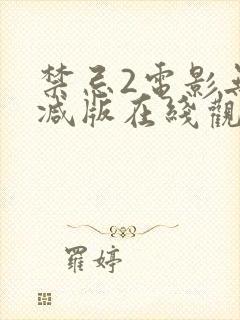 禁忌2電影
减版在綫觀
羅婷